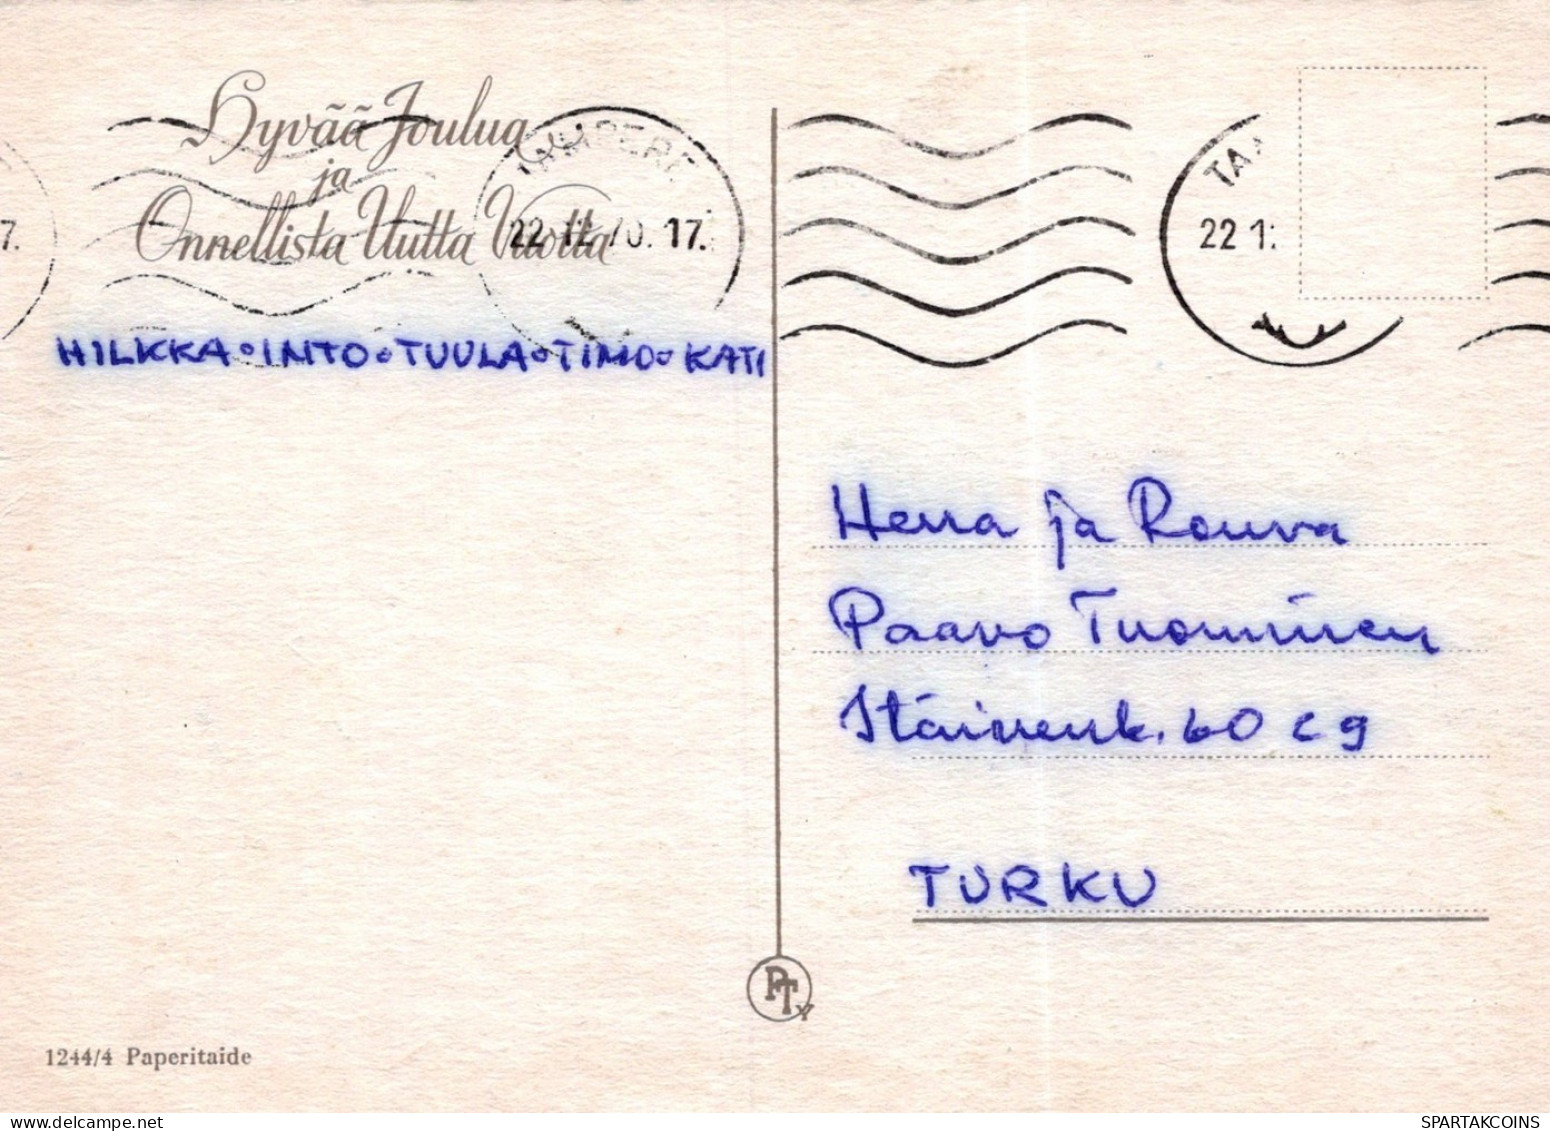 Hyvää Joulua
ja
Onnellista Uutta Vuotta
TAMPERE
22.12.70.17.
7.
TA
22 1
HILKKA • INTO • TUULA • TIMO • KATI
Herra ja Rouva
Paavo Tuominen
Itäinenk. 60 C 9
TURKU
PTy
1244/4 Paperitaide
delcampe.net
SPARTAKCOINS